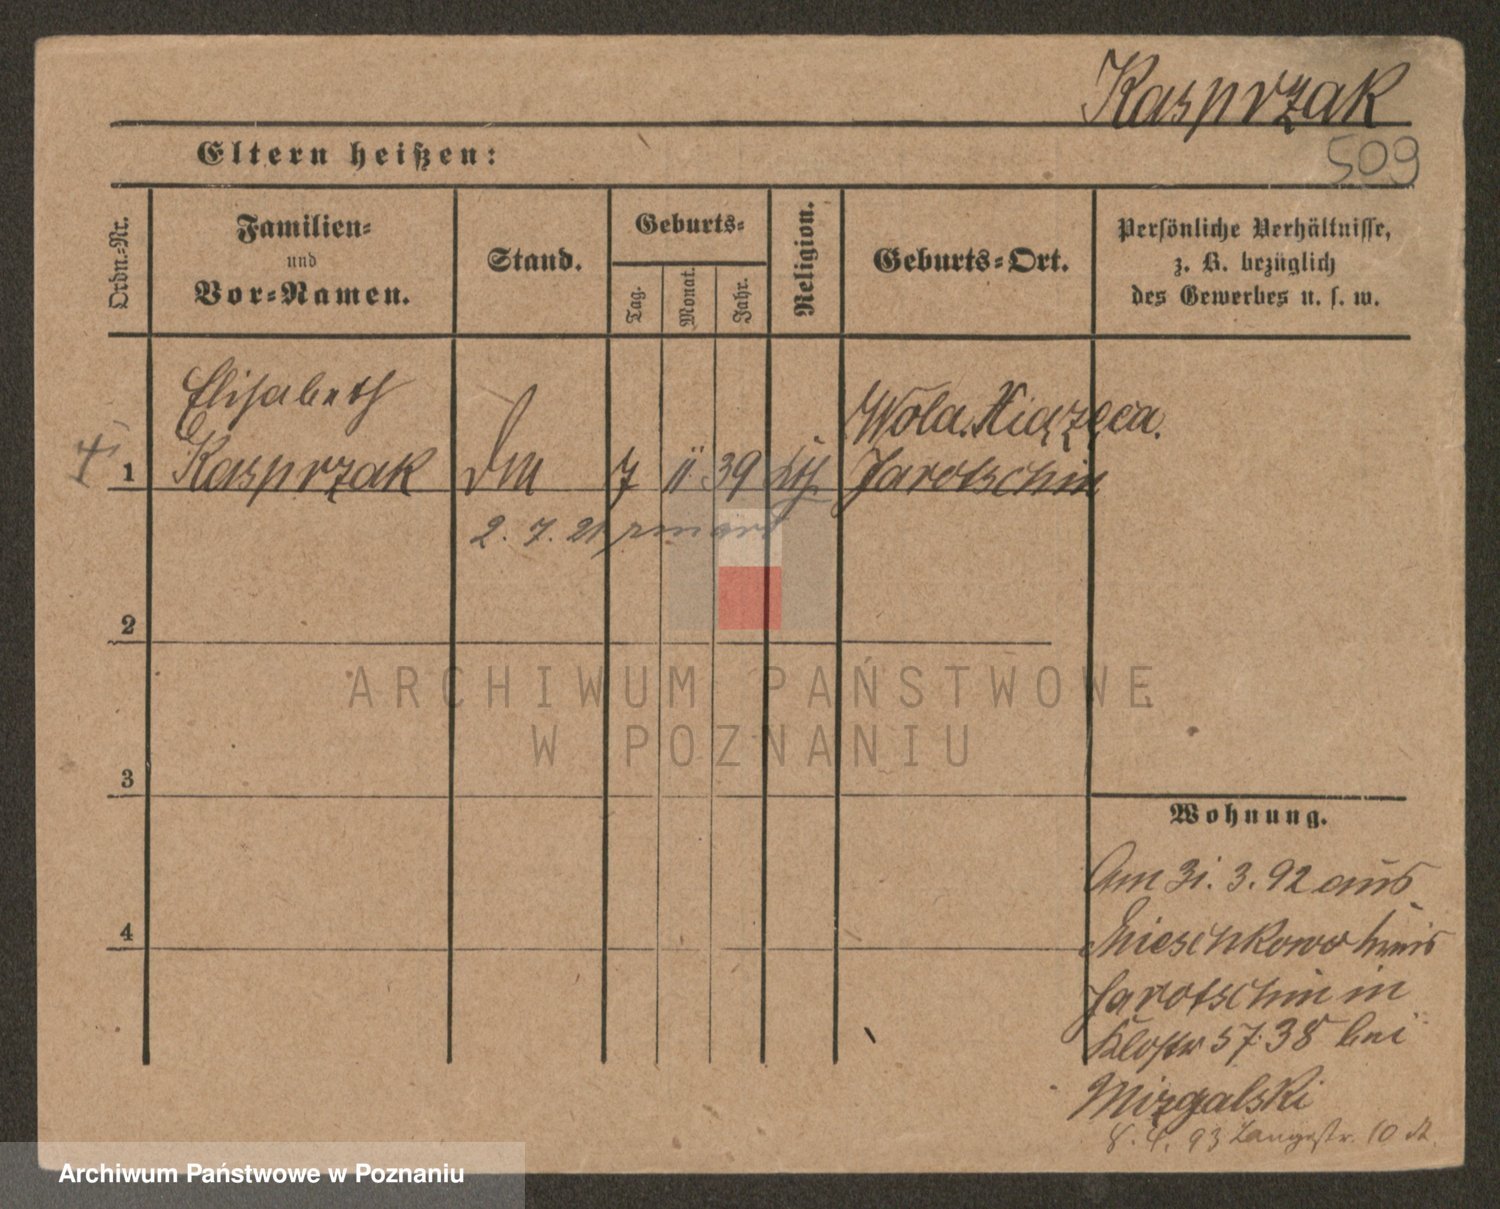 Kasprzak
509
Eltern heißen:
Ordn.-Nr.
Familien-
und
Vor-Namen.
Stand.
Geburts-
Tag.
Monat.
Jahr.
Religion.
Geburts-Ort.
Persönliche Verhältnisse,
z. B. bezüglich
des Gewerbes u. s. w.
Elisabeth
Wola. Xiązęca.
1 Kasprzak 7 11 39 kth Jarotschin
2. 7. 21
2
ARCHIWUM PAŃSTWOWE
W POZNANIU
3
Wohnung.
Am 31. 3. 92 aus
4
Mieschkowo
Jarotschin in
Kloster 57.38 bei
Mizgalski
8. 4. 93 Langestr. 10
Archiwum Państwowe w Poznaniu